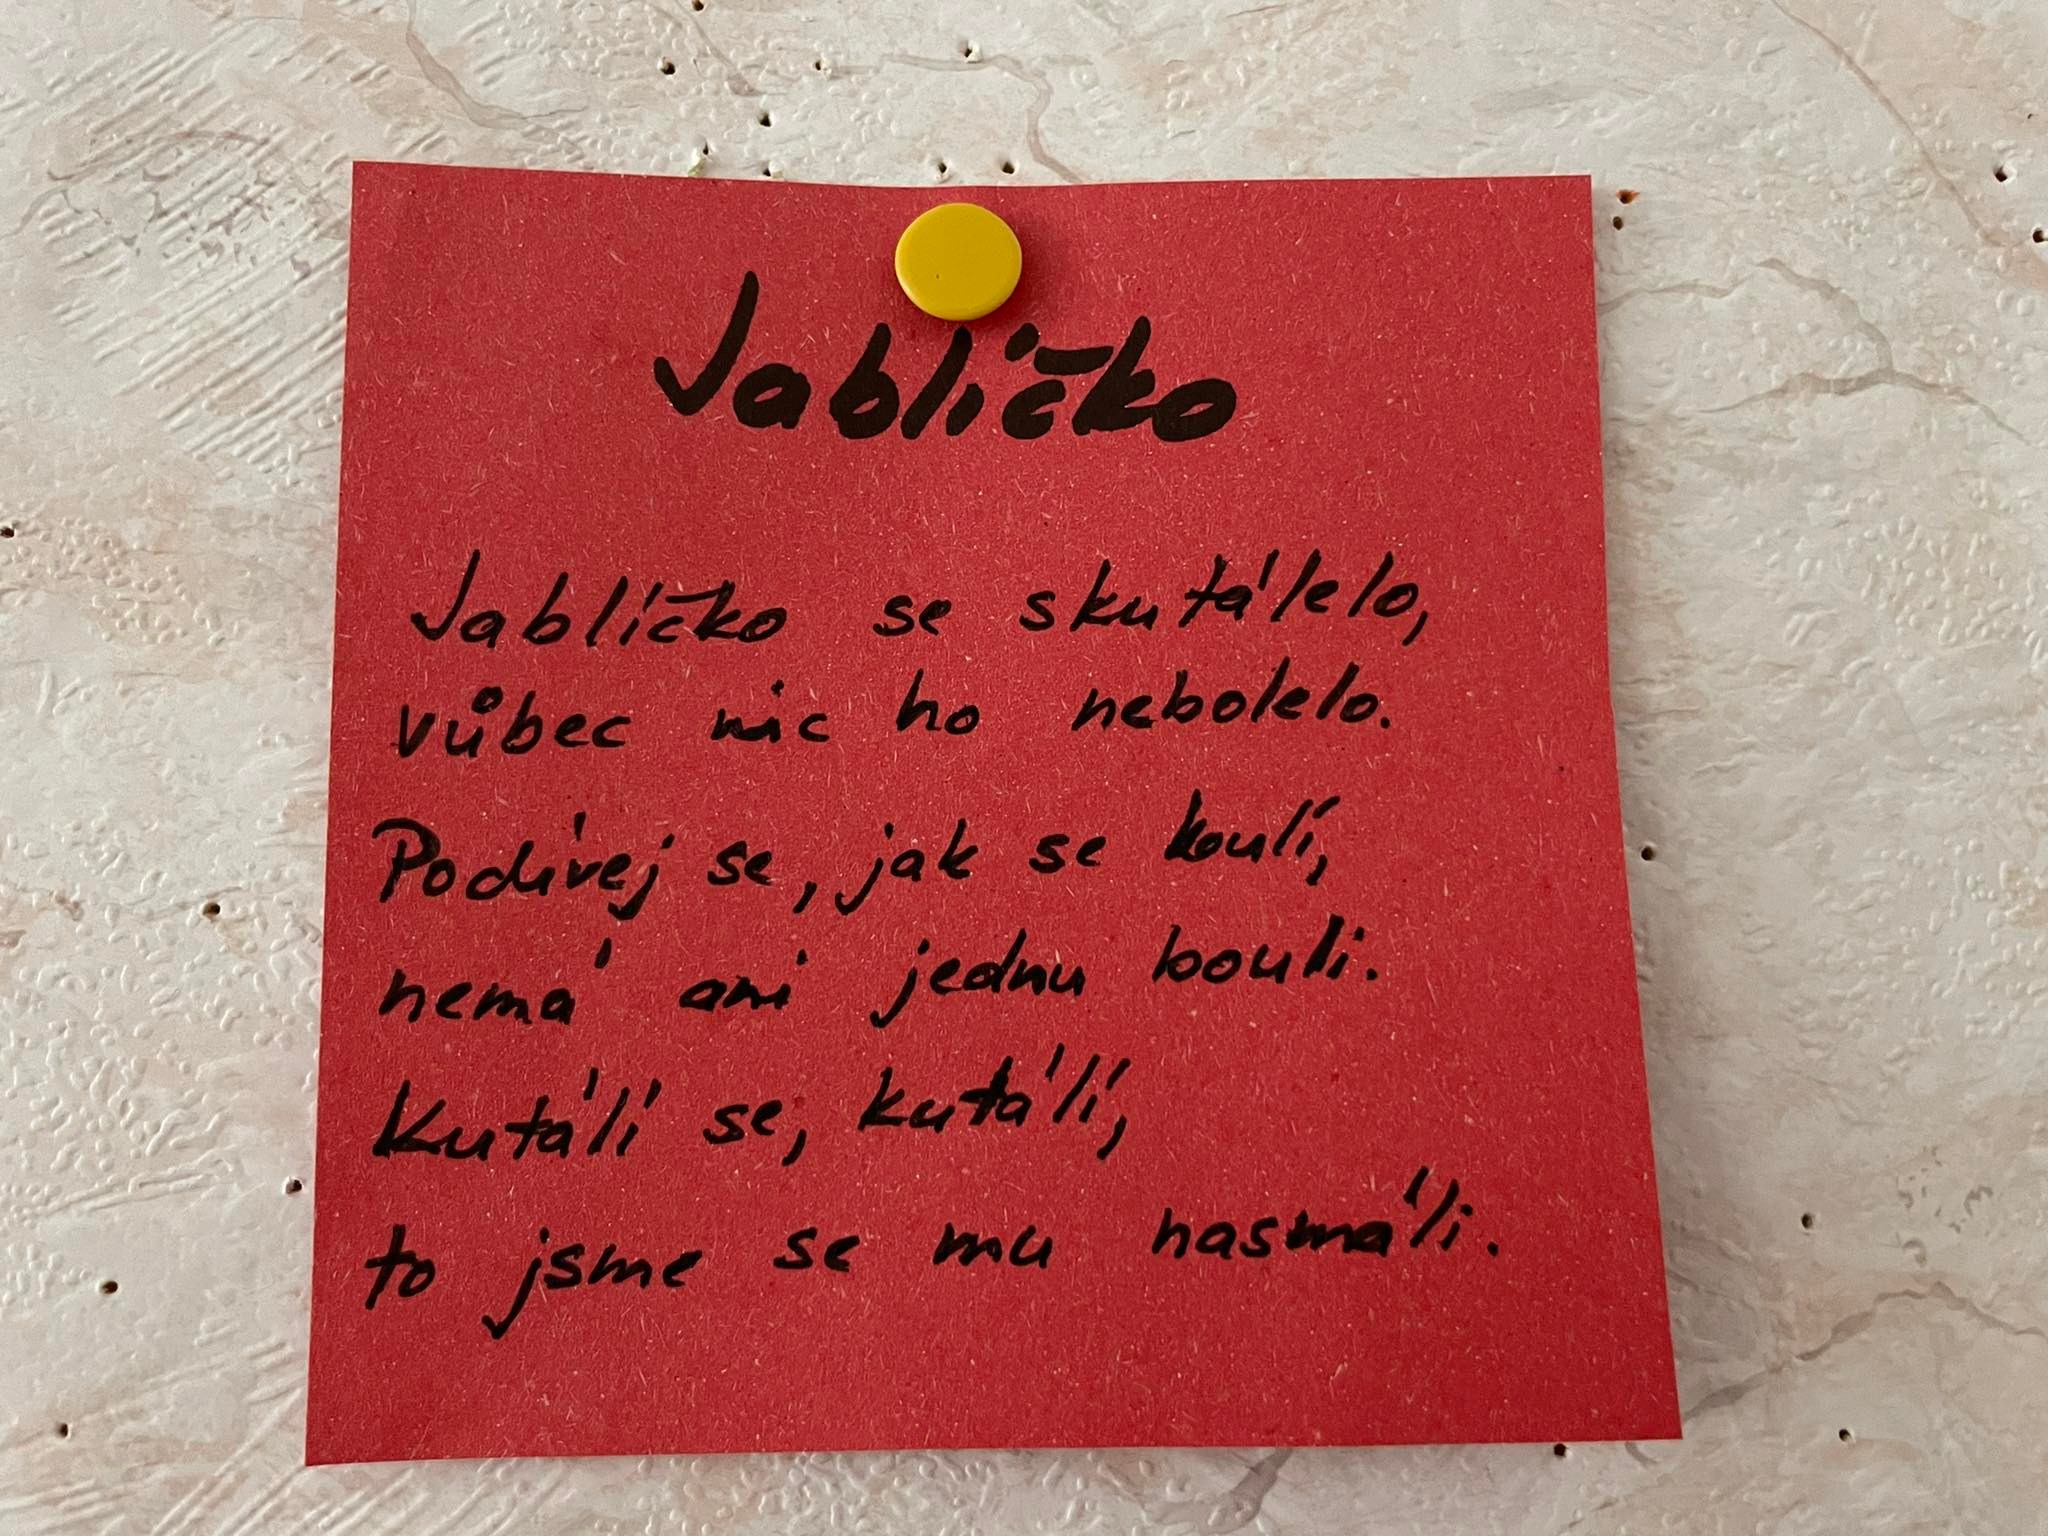 Jablíčko
Jablíčko se skutálelo,
vůbec nic ho nebolelo.
Podívej se, jak se koulí,
nemá ani jednu bouli.
Kutálí se, kutálí,
to jsme se mu nasmáli.